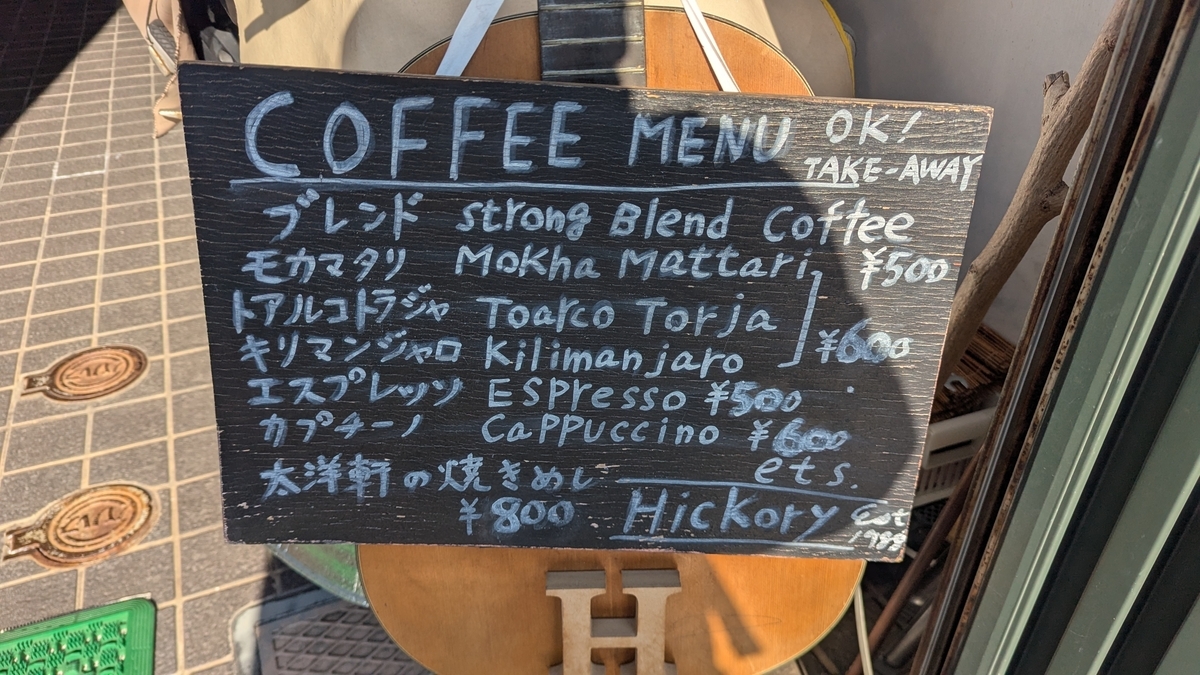 COFFEE MENU OK!
TAKE-AWAY
ブレンド strong Blend Coffee
¥500
モカマタリ Mokha Mattari
トアルコトラジャ Toarco Torja
キリマンジャロ Kilimanjaro ¥600
エスプレッソ Espresso ¥500
カプチーノ Cappuccino ¥600
ets.
太洋軒の焼きめし
¥800
Hickory
H